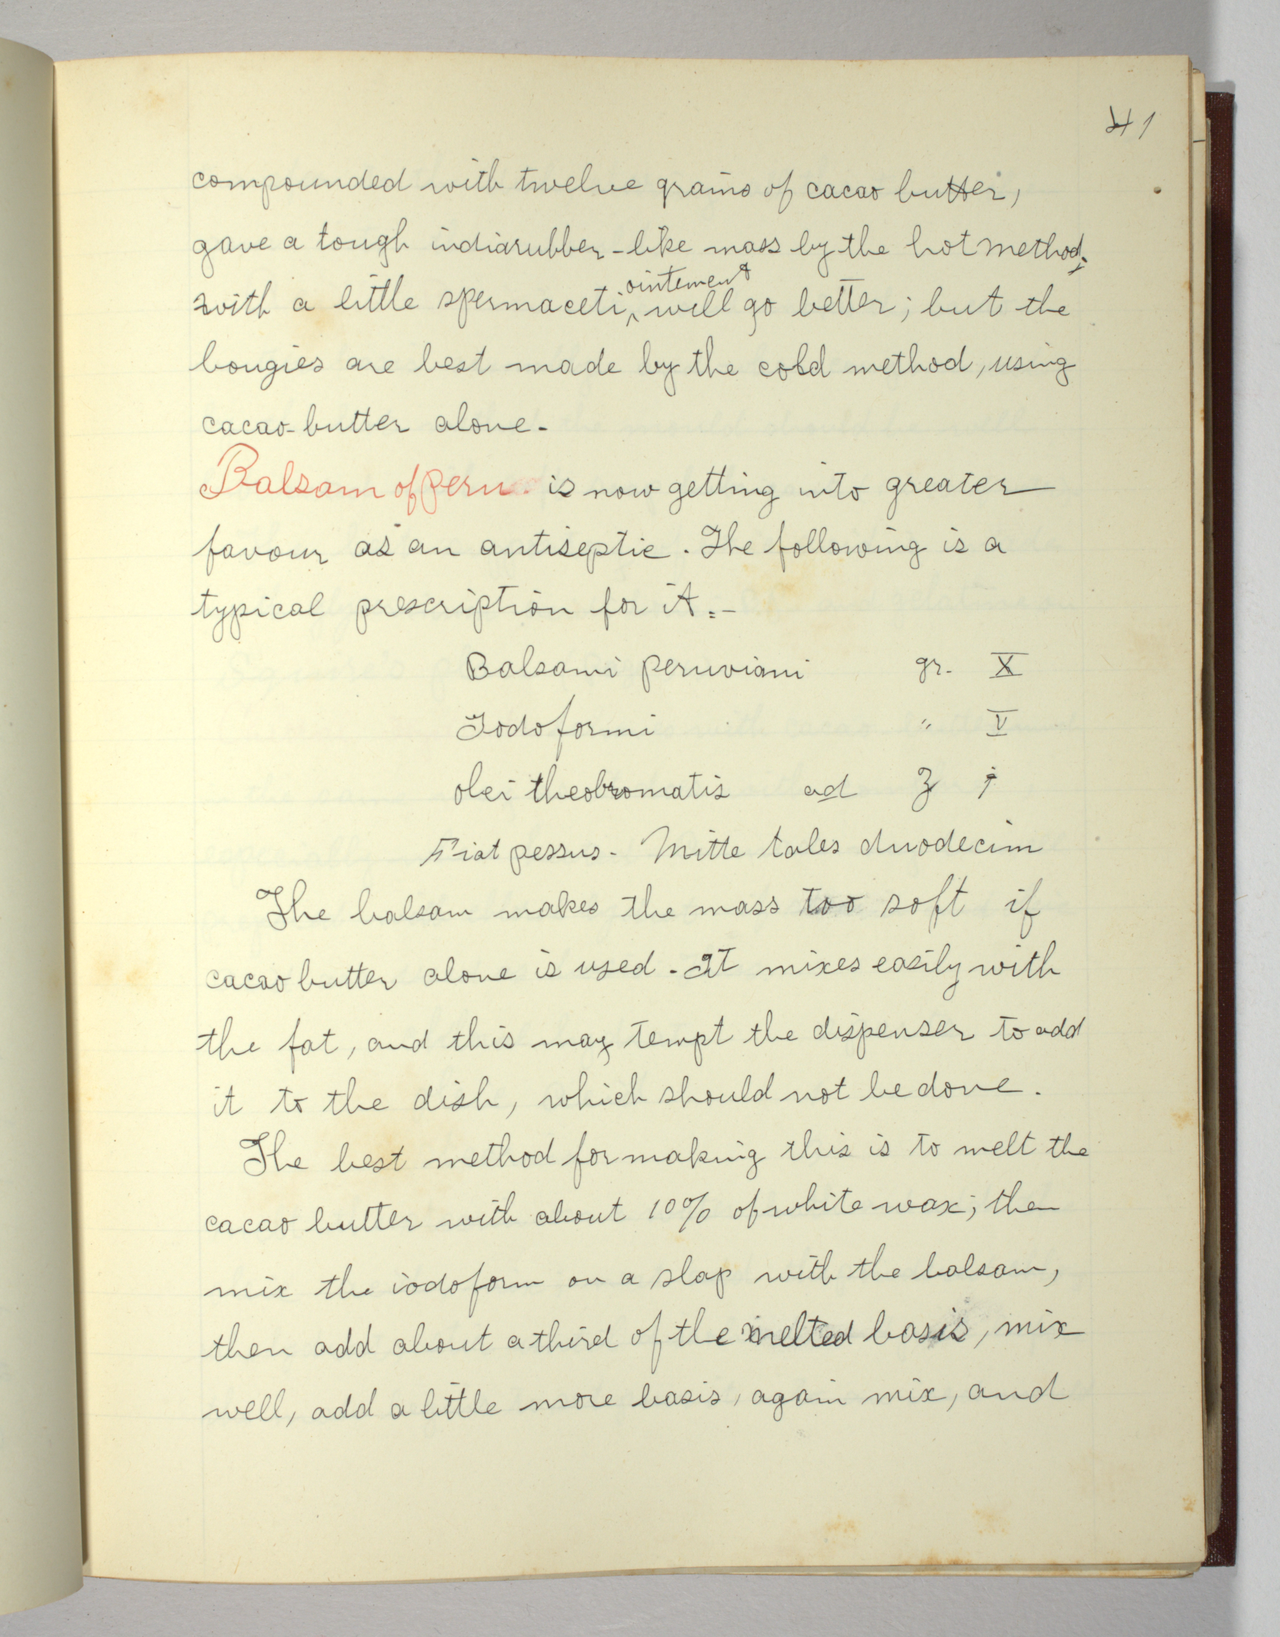 41
compounded with twelve grains of cacao butter,
gave a tough indiarubber-like mass by the hot method;
with a little spermaceti ointement will go better; but the
bougies are best made by the cold method, using
cacao-butter alone.
Balsam of Peru is now getting into greater
favour as an antiseptic. The following is a
typical prescription for it:-
Balsami peruviani gr. X
Iodoformi " V
olei theobromatis ad ʒ i
Fiat pessus. Mitte tales duodecim
The balsam makes the mass too soft if
cacao butter alone is used. It mixes easily with
the fat, and this may tempt the dispenser to add
it to the dish, which should not be done.
The best method for making this is to melt the
cacao butter with about 10% of white wax; then
mix the iodoform on a slap with the balsam,
then add about a third of the melted basis, mix
well, add a little more basis, again mix, and